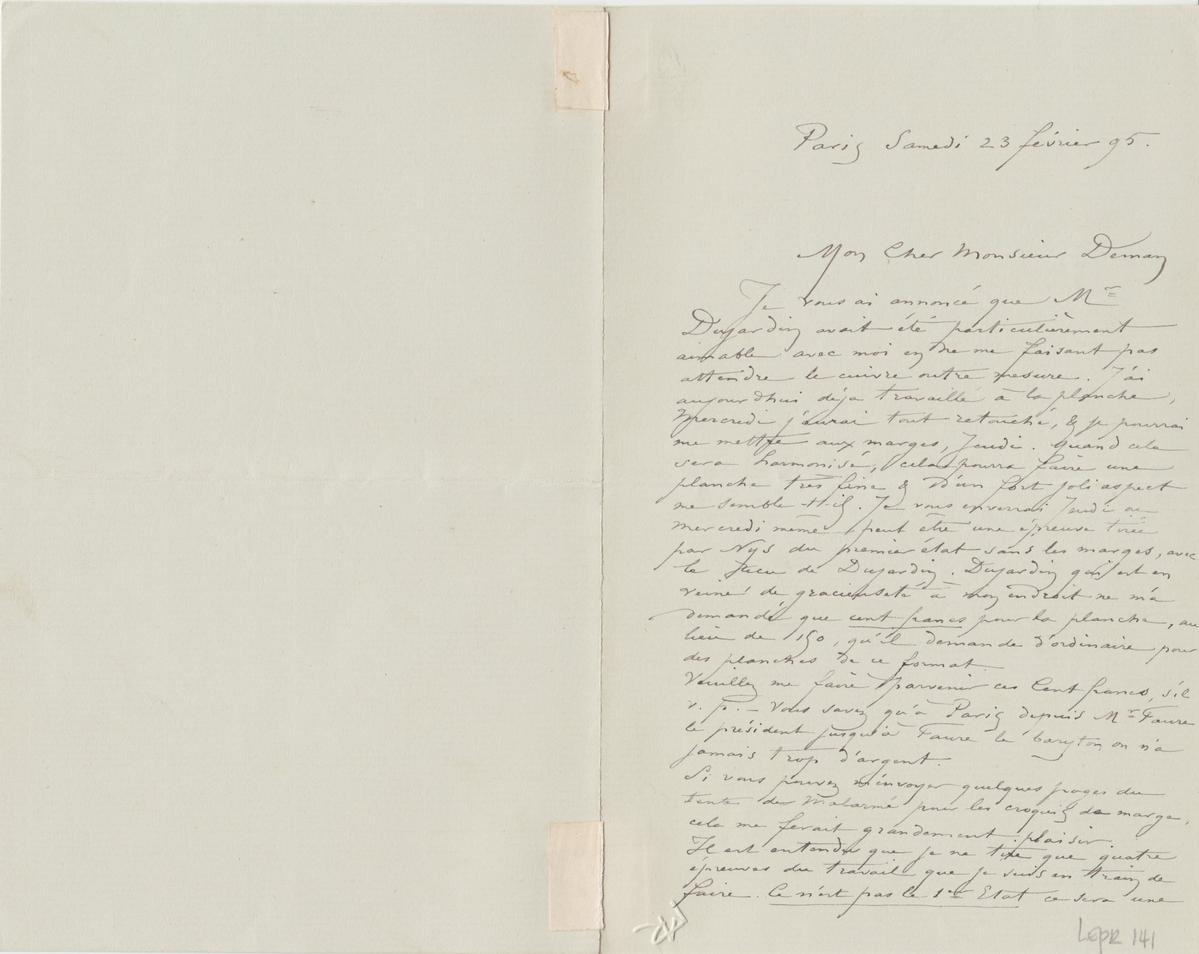 Paris Samedi 23 février 95.
Mon Cher Monsieur Deman
Je vous ai annoncé que Mr
Dujardin avait été particulièrement
aimable avec moi en ne me faisant pas
attendre le cuivre outre mesure. J'ai
aujourdhui déja travaillé à la planche,
Mercredi j'aurai tout retouché, & je pourrai
me mettre aux marges, Jeudi. Quand cela
sera harmonisé, cela pourra faire une
planche très fine & d'un fort joli aspect
me semble-t-il. Je vous enverrai Jeudi ou
mercredi même peut être une épreuve tirée
par Nys du premier état sans les marges, avec
le de Dujardin. Dujardin qui est en
veine de gracieuseté à mon endroit ne m'a
demandé que cent francs pour la planche, au
lieu de 150, qu'il demande d'ordinaire pour
des planches de ce format.
Veuillez me faire parvenir ces Cent francs, s'il
v. p. – Vous savez qu'à Paris depuis Mr Faure
le président jusqu'à Faure le baryton on n'a
jamais trop d'argent.
Si vous pouvez m'envoyer quelques pages du
texte de Malarmé pour les croquis de marge,
cela me ferait grandement plaisir.
Il est entendu que je ne tire que quatre
épreuves du travail que je suis en train de
faire. Ce n'est pas le 1er Etat ce sera une
LEPR 141